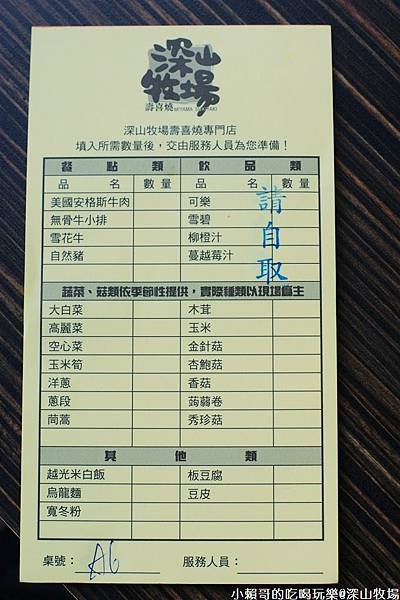 深山
牧場
壽喜燒 MIYAMA SUKIYAKI
深山牧場壽喜燒專門店
填入所需數量後，交由服務人員為您準備！
餐點類 飲品類
品名 數量 品名 數量
美國安格斯牛肉 可樂
無骨牛小排 雪碧
雪花牛 柳橙汁
自然豬 蔓越莓汁
請自取
蔬菜、菇類依季節性提供，實際種類以現場為主
大白菜 木茸
高麗菜 玉米
空心菜 金針菇
玉米筍 杏鮑菇
洋蔥 香菇
蔥段 蒟蒻卷
茼蒿 秀珍菇
其他類
越光米白飯 板豆腐
烏龍麵 豆皮
寬冬粉
桌號： A6 服務人員：
小賴哥的吃喝玩樂@深山牧場